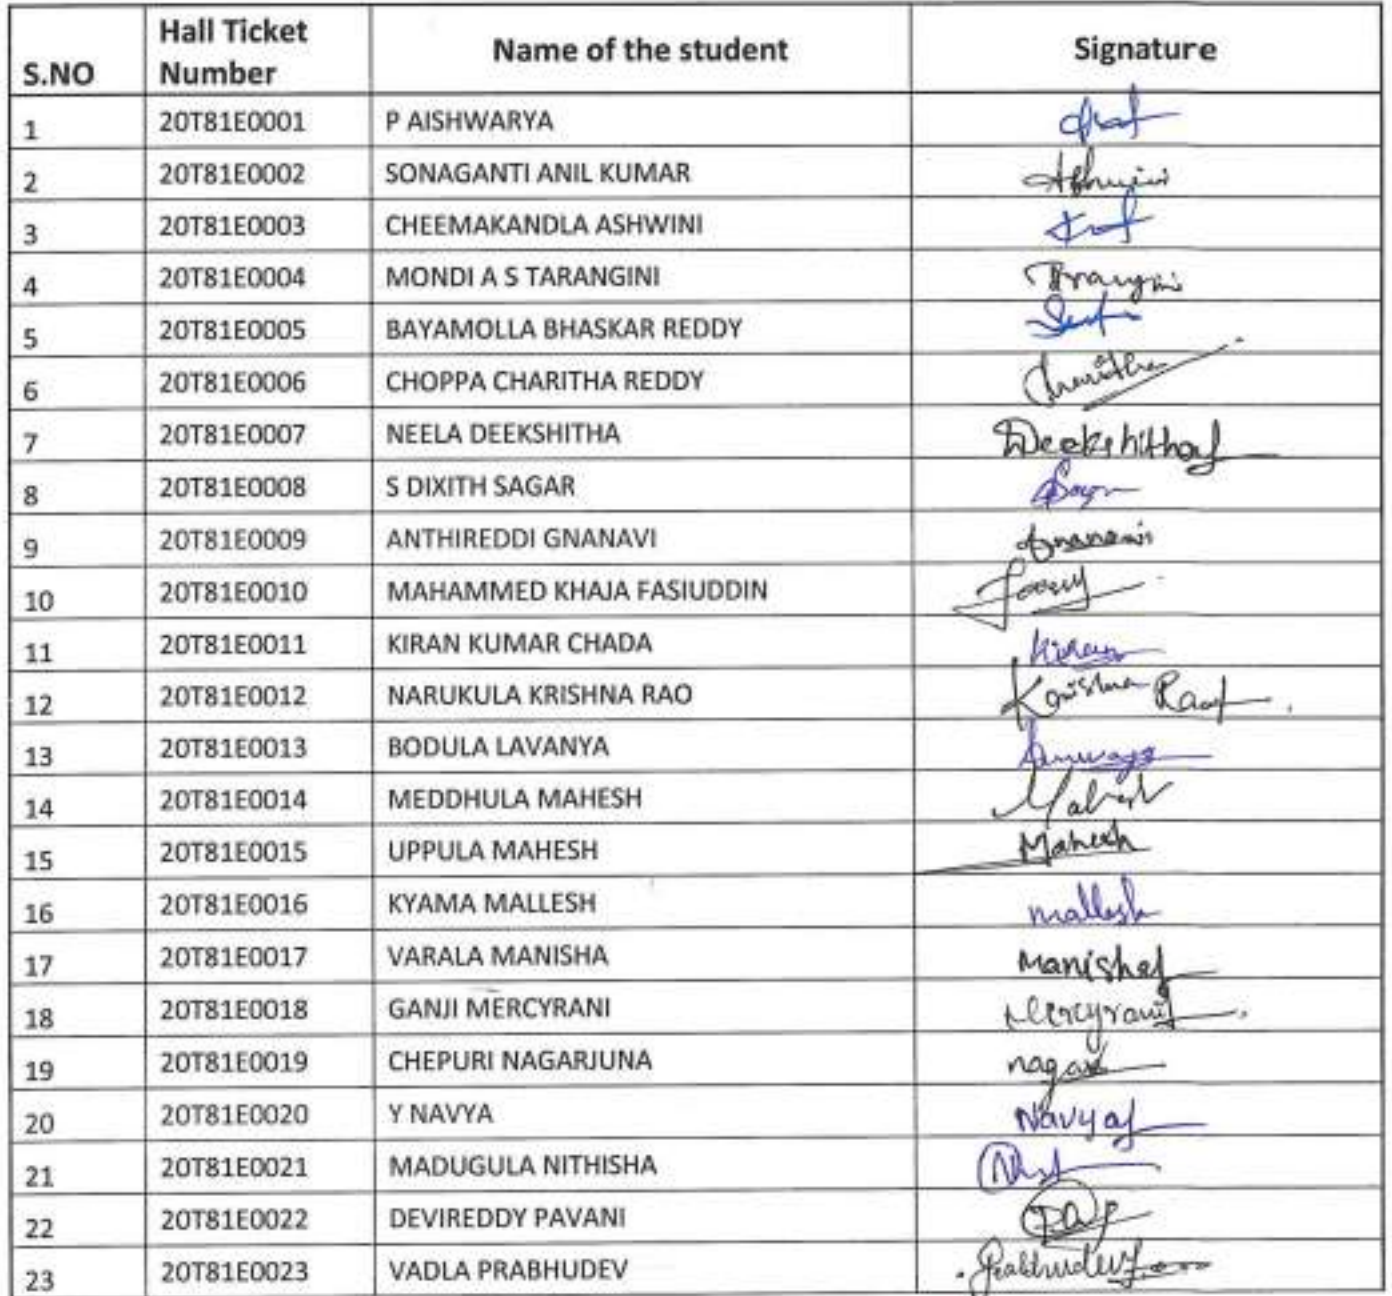 S.NO Hall Ticket Number Name of the student Signature
1 20T81E0001 P AISHWARYA
2 20T81E0002 SONAGANTI ANIL KUMAR
3 20T81E0003 CHEEMAKANDLA ASHWINI
4 20T81E0004 MONDI A S TARANGINI
5 20T81E0005 BAYAMOLLA BHASKAR REDDY
6 20T81E0006 CHOPPA CHARITHA REDDY Charitha
7 20T81E0007 NEELA DEEKSHITHA Deekshitha
8 20T81E0008 S DIXITH SAGAR
9 20T81E0009 ANTHIREDDI GNANAVI
10 20T81E0010 MAHAMMED KHAJA FASIUDDIN
11 20T81E0011 KIRAN KUMAR CHADA Kiran
12 20T81E0012 NARUKULA KRISHNA RAO Krishna Rao
13 20T81E0013 BODULA LAVANYA
14 20T81E0014 MEDDHULA MAHESH Mahesh
15 20T81E0015 UPPULA MAHESH Mahesh
16 20T81E0016 KYAMA MALLESH mallesh
17 20T81E0017 VARALA MANISHA Manisha
18 20T81E0018 GANJI MERCYRANI Mercyrani
19 20T81E0019 CHEPURI NAGARJUNA
20 20T81E0020 Y NAVYA Navya
21 20T81E0021 MADUGULA NITHISHA
22 20T81E0022 DEVIREDDY PAVANI
23 20T81E0023 VADLA PRABHUDEV Prabhudev